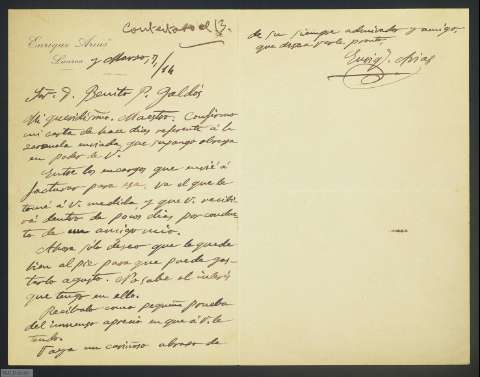 Contestado el 13.
Enrique Arias
Lucena
y Marzo, 7/14
Sr. D. Benito P. Galdós
Mi queridísimo Maestro: Confirmo
mi carta de hace días referente á la
enviada, que supongo obrará
en poder de V.
Entre los encargos que envié á
facturar para esa, va el que le
tomé á V. medida, y que V. recibi
rá dentro de pocos días por conduc
to de un amigo mio.
Ahora sólo deseo que le quede
bien al pie para que pueda gas
tarlo agusto. No sabe el interés
que tengo en ello.
Recíbalo como pequeña prueba
del inmenso aprecio en que á V. le
tendo.
Vaya un cariñoso abrazo de
de su siempre admirador y amigo,
que desea verle pronto.
Enriq. Arias